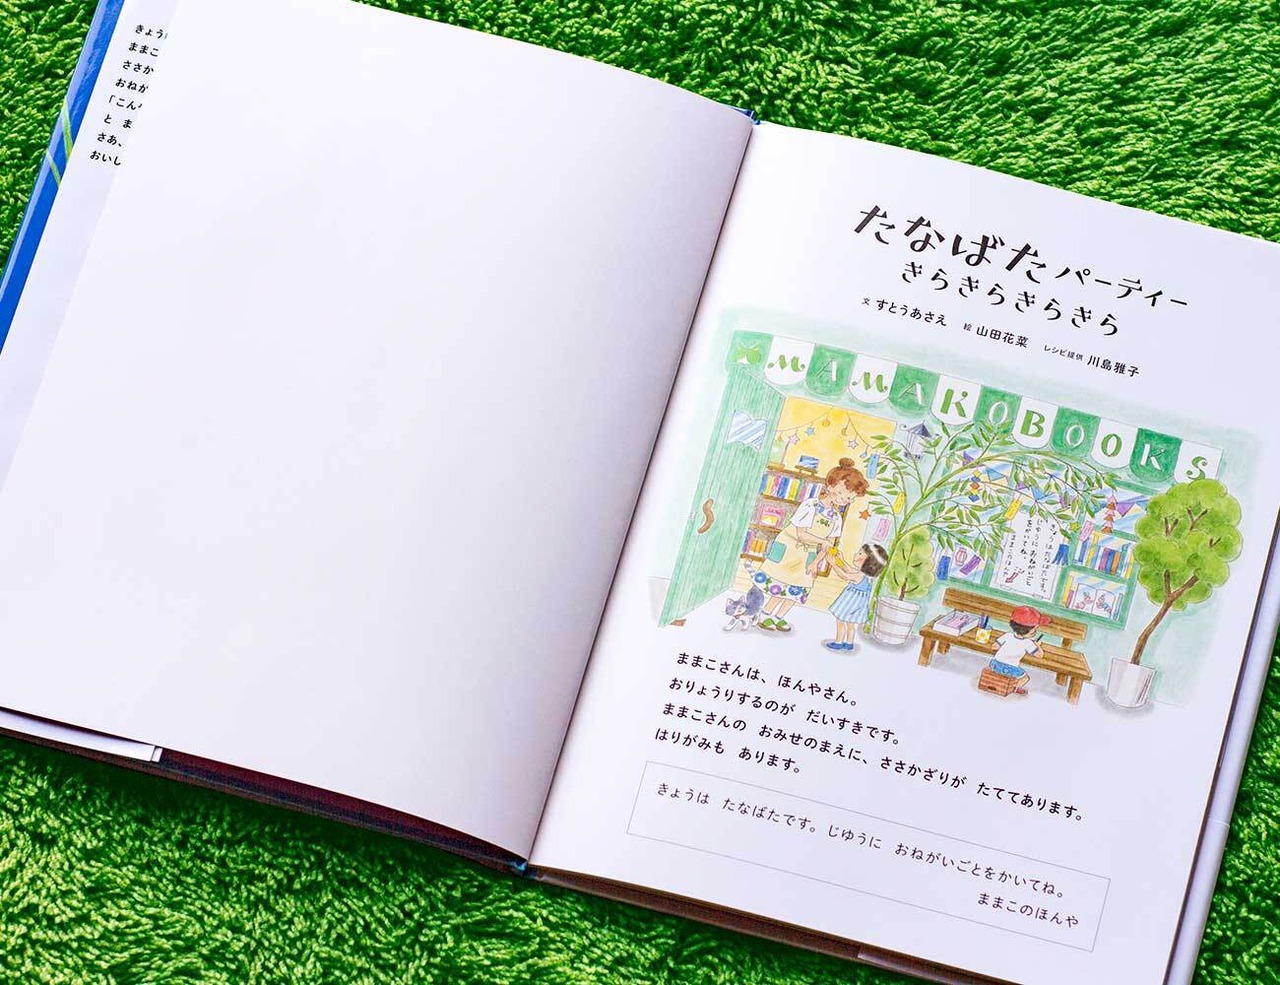 きょう
ままこ
ささか
おねが
「こん
と ま
さあ、
おいし
たなばたパーティー
きらきらきらきら
文 すとうあさえ 絵 山田花菜 レシピ提供 川島雅子
MAMAKOBOOKS
きょうはたなばたです。
じゆうにおねがいごと
をかいてね。
ままこのほんや
ままこさんは、ほんやさん。
おりょうりするのが だいすきです。
ままこさんの おみせのまえに、ささかざりが たててあります。
はりがみも あります。
きょうは たなばたです。じゆうに おねがいごとをかいてね。
ままこのほんや